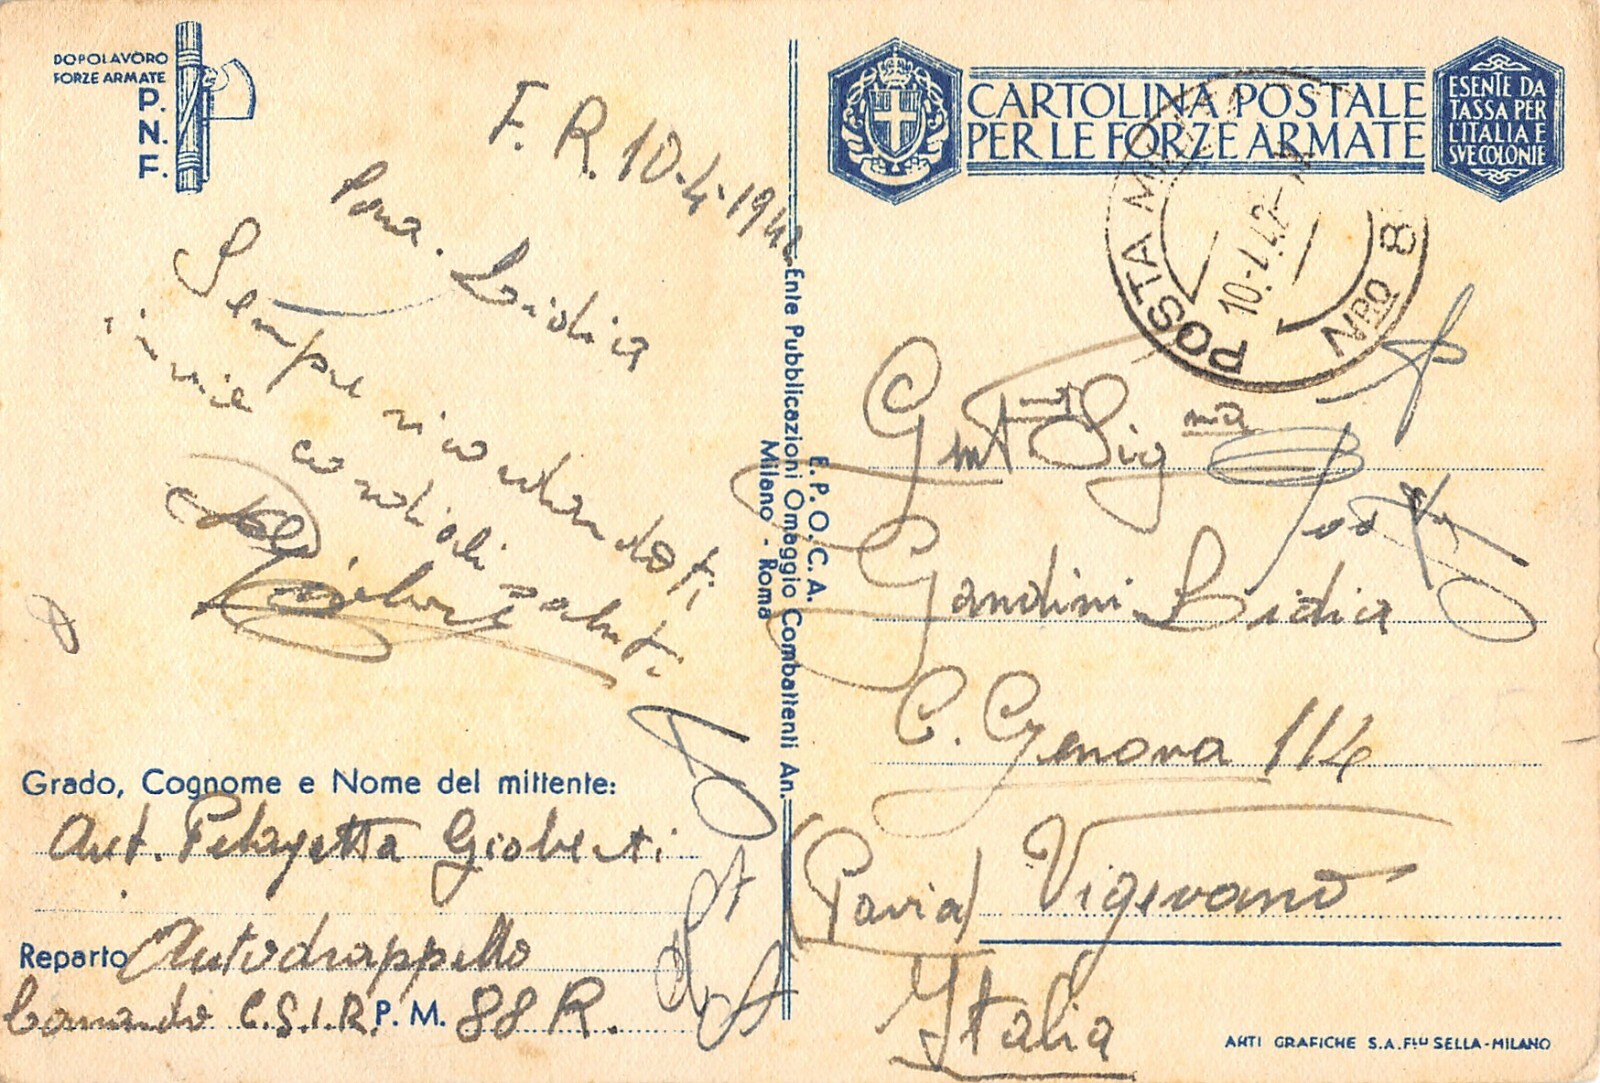 DOPOLAVORO
FORZE ARMATE
P.
N.
F.
F. R. 10-4-1942
Lidia
Sempre ricordandoti
invie cordiali saluti
Grado, Cognome e Nome del mittente:
Aut. Pelagatta Gioberti
Reparto Autodrappello
Comando C.S.I.R. P. M. 88 R.
E. P. O. C. A.
Ente Pubblicazioni Omaggio Combattenti An.
Milano - Roma
CARTOLINA POSTALE
PER LE FORZE ARMATE
ESENTE DA
TASSA PER
L'ITALIA E
SVE COLONIE
POSTA MILITARE
NRO 8
10.4.42
Gent Sig na
Gandini Lidia
C. Genova 114
(Pavia) Vigevano
Italia
ARTI GRAFICHE S.A. FLLI SELLA-MILANO